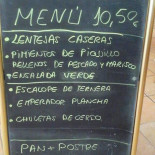 MENÚ 10,50
• LENTEJAS CASERAS
• PIMIENTOS DE PIQUILLO
RELLENOS DE PESCADO Y MARISCO
• ENSALADA VERDE
• ESCALOPE DE TERNERA
• EMPERADOR PLANCHA
• CHULETAS DE CERDO
PAN + POSTRE